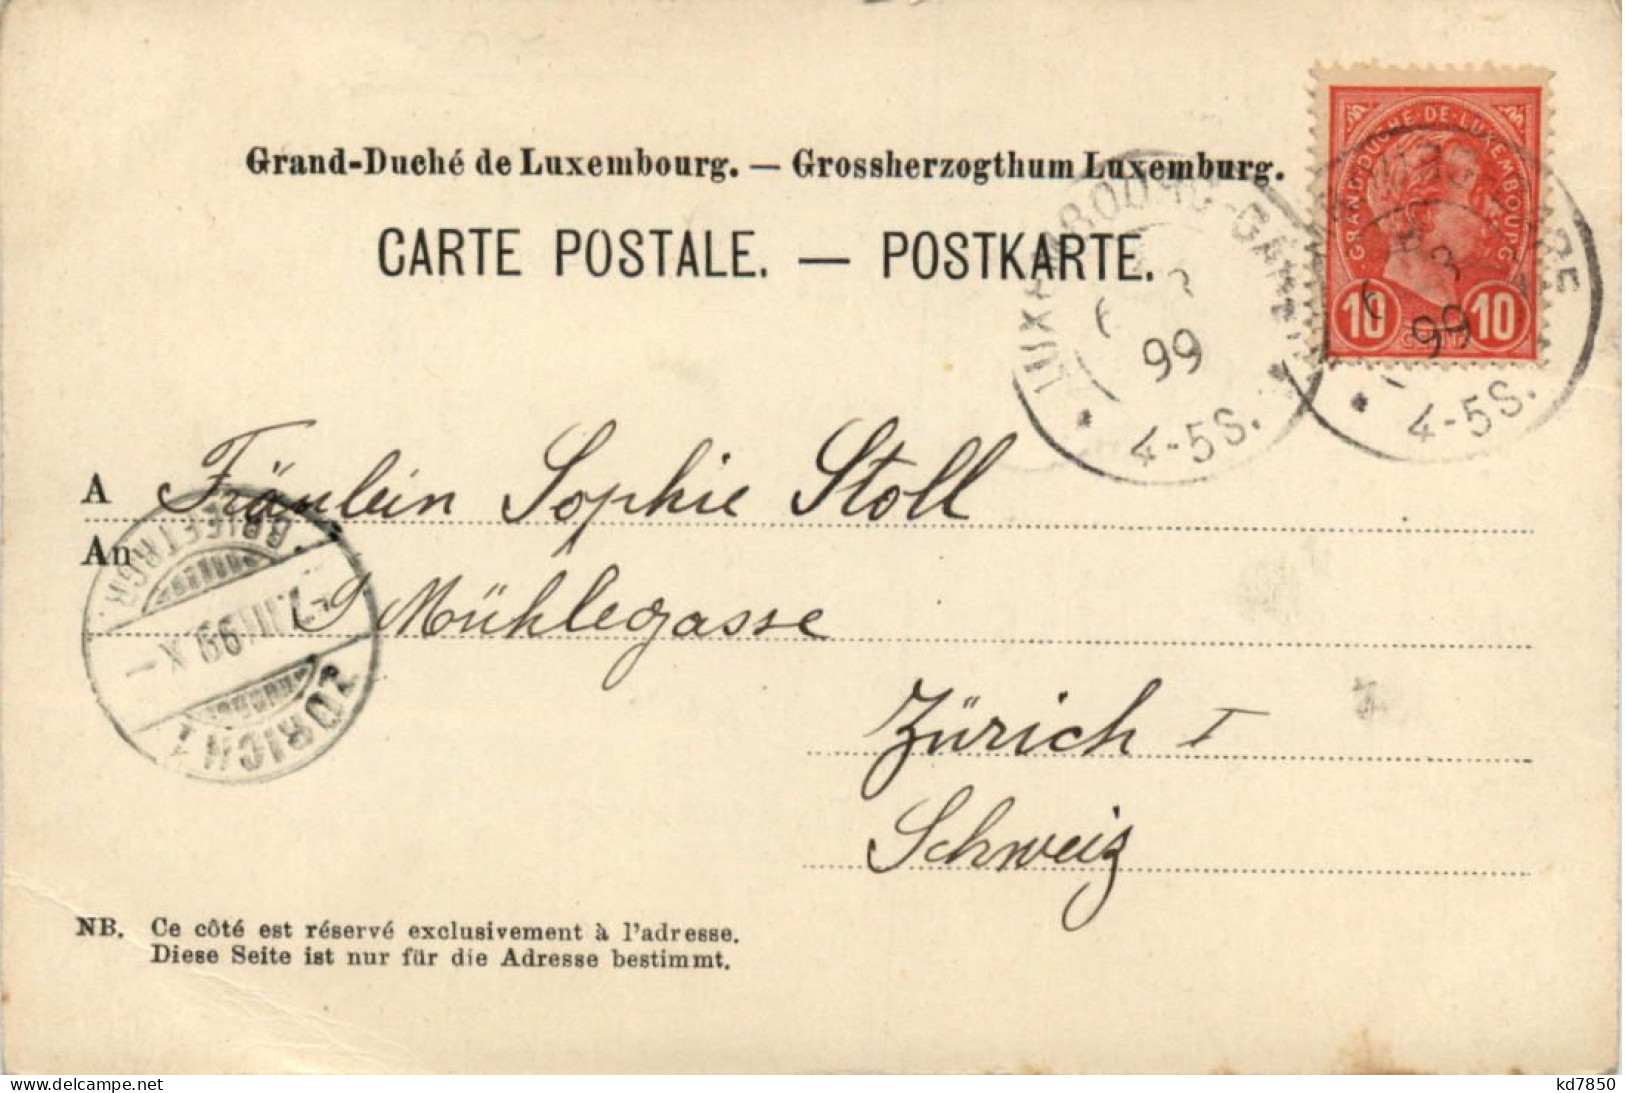 GRAND DUCHÉ-DE-LUXEMBOURG
10 CENT. 10
Grand-Duché de Luxembourg. — Grossherzogthum Luxemburg.
CARTE POSTALE. — POSTKARTE.
LUXEMBOURG-GARE
6 3
99
4-5S.
LUXEMBOURG-GARE
6 3
99
4-5S.
A Fräulein Sophie Stoll
An
9 Mühlegasse
Zürich I
Schweiz
ZÜRICH 1
-7.III.99 X-
BRIEFTRGR.
NB. Ce côté est réservé exclusivement à l'adresse.
Diese Seite ist nur für die Adresse bestimmt.
delcampe.net
kd7850